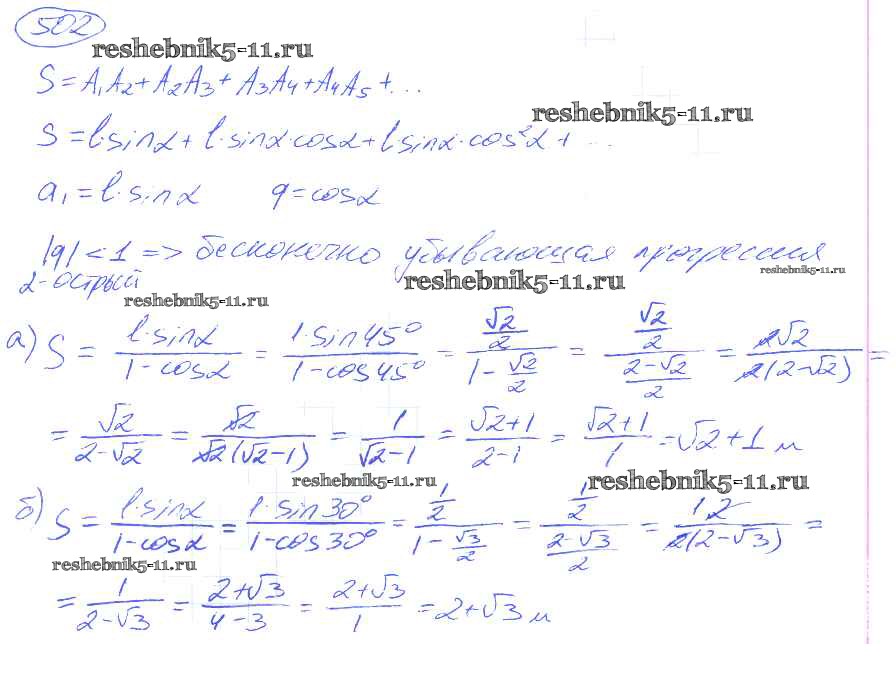 502
reshebnik5-11.ru
S = A₁A₂ + A₂A₃ + A₃A₄ + A₄A₅ + ...
reshebnik5-11.ru
S = l·sinα + l·sinα·cosα + l·sinα·cos²α + ...
a₁ = l·sinα q = cosα
|q| < 1 => бесконечно убывающая прогрессия
α-острый reshebnik5-11.ru reshebnik5-11.ru
reshebnik5-11.ru
а) S = l·sinα/(1-cosα) = 1·sin45°/(1-cos45°) = (√2/2)/(1-√2/2) = (√2/2)/((2-√2)/2) = 2√2/(2(2-√2)) =
= √2/(2-√2) = √2/(√2(√2-1)) = 1/(√2-1) = (√2+1)/(2-1) = (√2+1)/1 = √2+1 м
reshebnik5-11.ru reshebnik5-11.ru
б) S = l·sinα/(1-cosα) = 1·sin30°/(1-cos30°) = (1/2)/(1-√3/2) = (1/2)/((2-√3)/2) = 1·2/(2(2-√3)) =
reshebnik5-11.ru
= 1/(2-√3) = (2+√3)/(4-3) = (2+√3)/1 = 2+√3 м